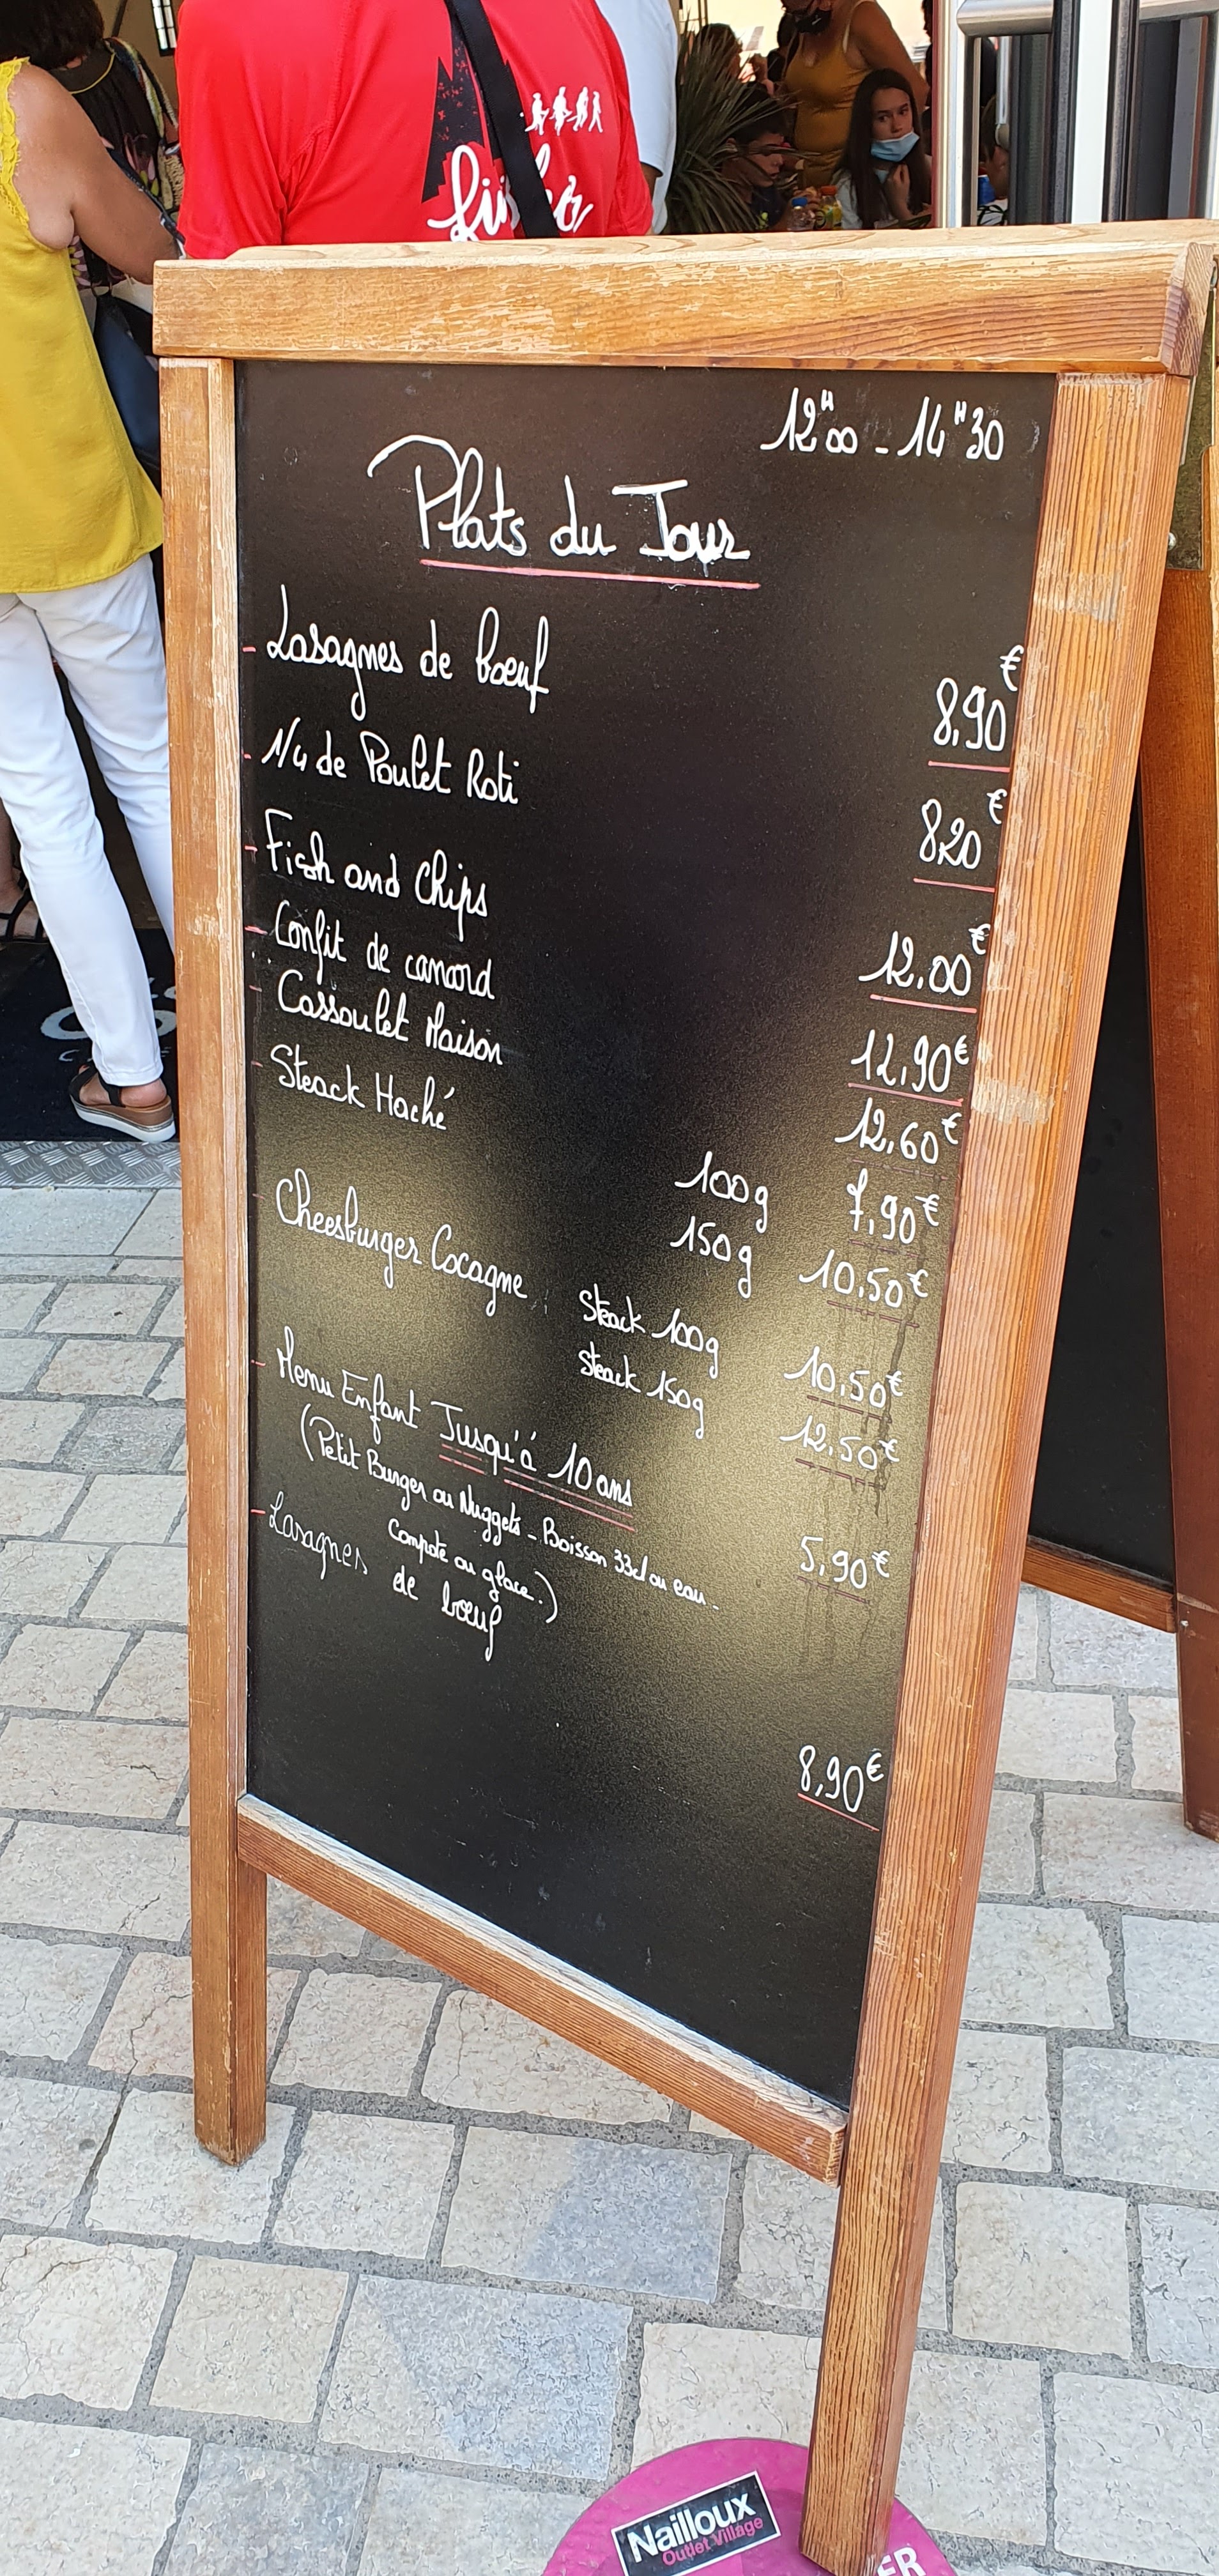 12H00 - 14H30
Plats du Jour
- Lasagnes de boeuf 8,90€
- 1/4 de Poulet Roti 8,20€
- Fish and Chips 12.00€
- Confit de canard 12,90€
- Cassoulet Maison 12,60€
- Steack Haché 100g 7,90€
150g 10,50€
- Cheesburger Cocagne : Steack 100g 10,50€
Steack 150g 12,50€
- Menu Enfant Jusqu'à 10 ans 5,90€
(Petit Burger ou Nuggets - Boisson 33cl ou eau -
Compote ou glace.)
- Lasagnes de boeuf 8,90€
Nailloux
Outlet Village